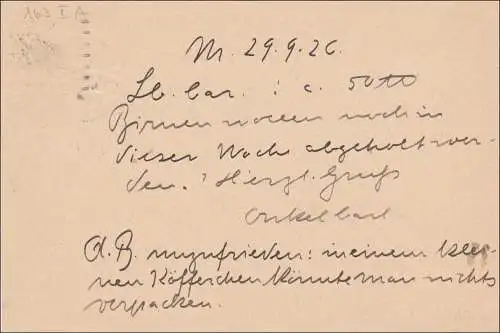 163 I A
Nr. 29.9.26.
Lb. Carl : c. 50 ℔
Birnen wollen noch in
dieser Woche abgeholt wer-
den. Herzl. Gruß
Onkel Carl
A. B. unzufrieden: in einem klei-
nen Köfferchen könnte man nichts
verpacken.